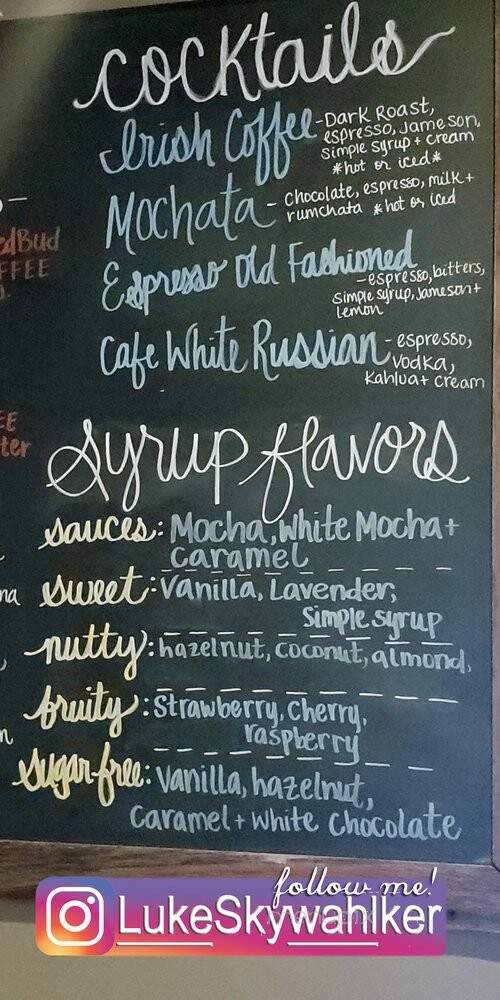 cocktails
Irish Coffee - Dark Roast,
espresso, Jameson,
simple syrup + cream
*hot or iced*
Mochata - chocolate, espresso, milk +
rumchata *hot or iced
Espresso Old Fashioned
- espresso, bitters,
simple syrup, Jameson +
lemon
Cafe White Russian - espresso,
vodka,
Kahlua + cream
syrup flavors
sauces: Mocha, White Mocha +
caramel
sweet: Vanilla, Lavender,
Simple syrup
nutty: hazelnut, coconut, almond,
fruity: Strawberry, Cherry,
raspberry
sugar free: Vanilla, hazelnut,
Caramel + White Chocolate
follow me!
LukeSkywahlker